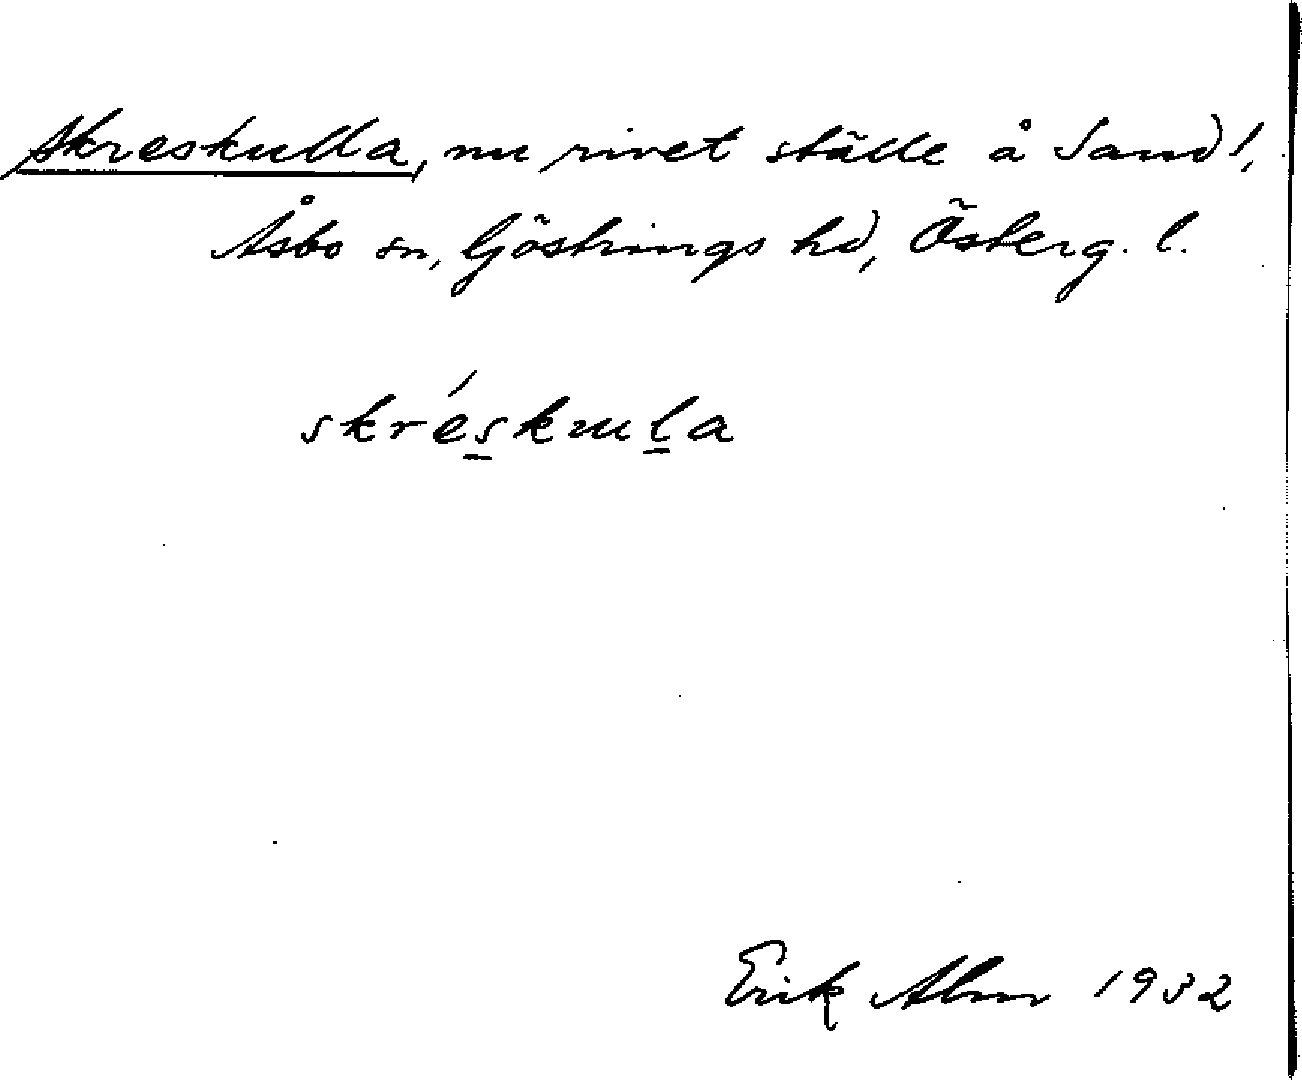 Skreskulla, nu rivet ställe å Sand!,
Åsbo sn, Göstrings hd, Österg. l.
skrés̲kul̲a
Erik Alm 1932